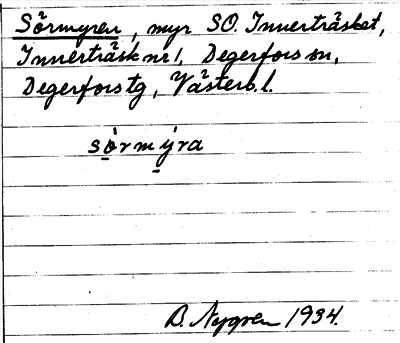 Sörmyren, myr SO. Innerträsket,
Innerträsk nr 1, Degerfors sn,
Degerfors tg, Västerb. l.
sò̤rmý̤ra
B. Nygren 1934.